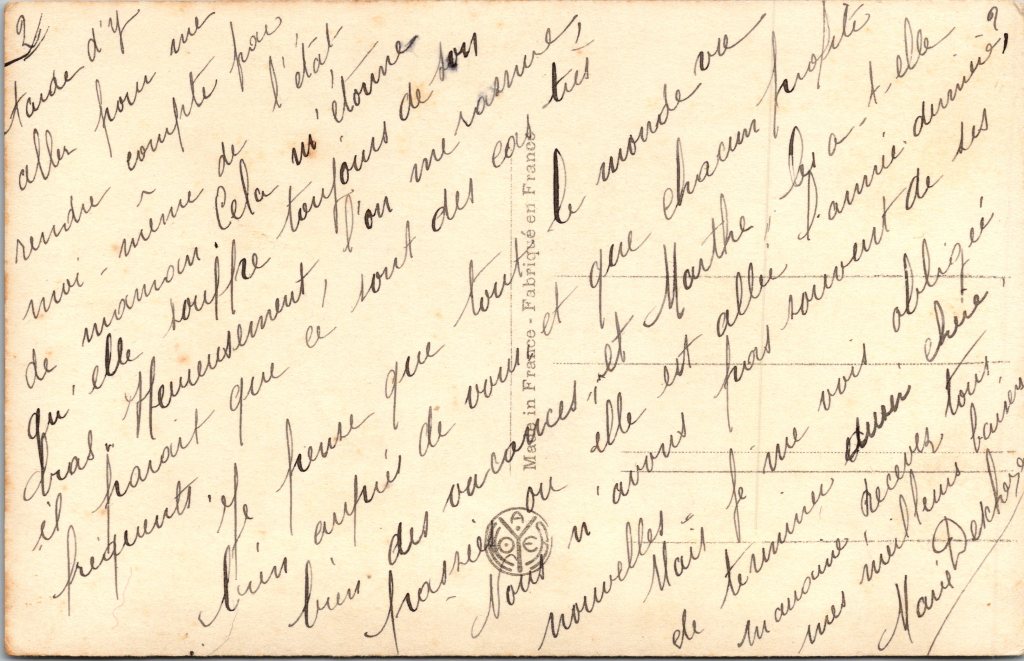 2
tarde d'y
aller pour me
rendre compte par
moi-même de l'état
de maman. Cela m'étonne
qu'elle souffre toujours de son
bras. Heureusement, l'on me rassure,
il parait que ce sont des cas très
fréquents. Je pense que tout le monde va
bien auprès de vous et que chacun profite
bien des vacances, et Marthe, les a-t-elle
passées où elle est allée l'année dernière?
Nous n'avons pas souvent de ses
nouvelles. Mais je me vois obligée
de terminer chérie,
marraine, Recevez tous
mes meilleurs baisers
Marie
Made in France - Fabriqué en France